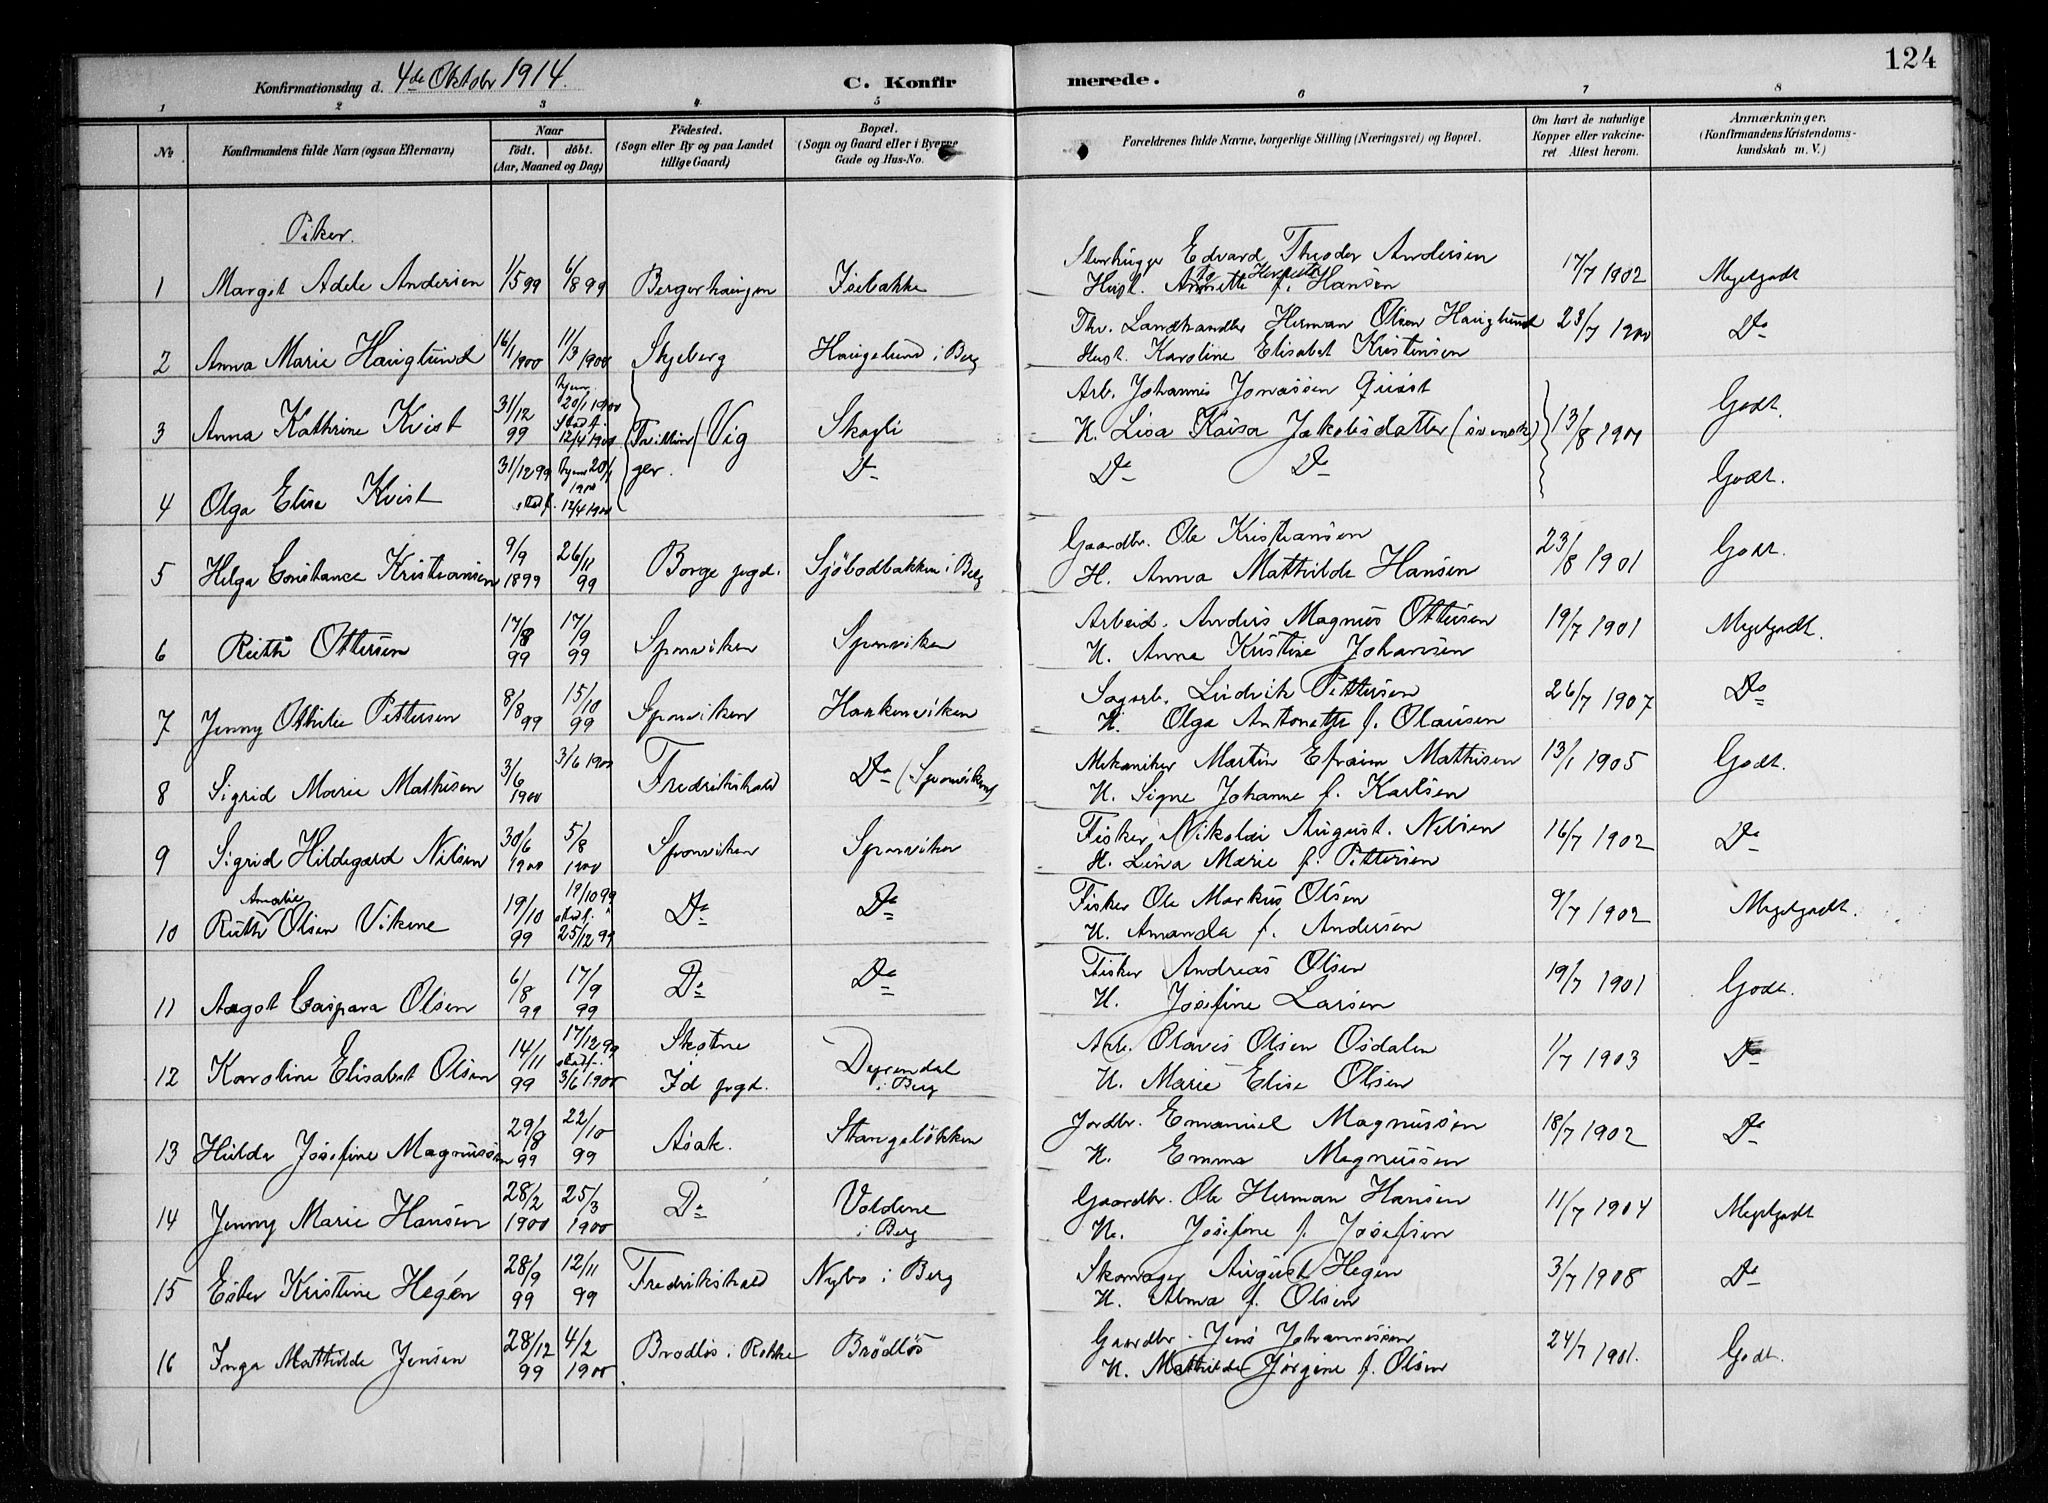 124
Konfirmationsdag d. 4de Oktober 1914.
C. Konfirmerede.
1 2 3 4 5 6 7 8
No
Konfirmandens fulde Navn (ogsaa Efternavn)
Naar
födt. döbt.
(Aar, Maaned og Dag)
Födested.
(Sogn eller By og paa Landet
tillige Gaard)
Bopæl.
(Sogn og Gaard eller i Byerne
Gade og Hus-No.
Forældrenes fulde Navne, borgerlige Stilling (Næringsvei) og Bopæl.
Om havt de naturlige
Kopper eller vakcine-
ret Attest herom.
Anmærkninger.
(Konfirmandens Kristendoms-
kundskab m. V.)
Piker.
1 Margit Adele Andersen 1/5 99 6/8 99 Isebakke Stenhugger Edvard Theodor Andersen 17/7 1902 Megetgodt
Hust. Annette f. Hansen
2 Anna Marie Hauglund 16/1 1900 11/3 1900 Skjeberg Haugelund i Berg Thv. Landhandler Herman Olsen Hauglund 23/7 1900 Do
Hust. Karoline Elisabet Kristensen
3 Anna Kathrine Kvist 31/12 99 hjem. 20/1 1900 Stadf. 12/4 1900 Skogli Arb. Johannes Jonassen Quist 13/8 1901 Godt.
H. Lisa Kaisa Jakobsdatter (svensk)
4 Olga Elise Kvist 31/12 99 hjem 20/1 1900 stadf. 12/4 1900 Do Do Do Godt.
5 Helga Constance Kristiansen 9/9 1899 26/11 99 Borge prgd. Sjöbodbakken i Berg Gaardbr. Ole Kristiansen 23/8 1901 Godt.
H. Anna Mathilde Hansen
6 Ruth Ottersen 17/8 99 17/9 99 Sponviken Sponviken Arbeid. Anders Magnus Ottersen 19/7 1901 Megetgodt.
H. Anna Kristine Johansen
7 Jenny Othilie Pettersen 8/8 99 15/10 99 Sponviken Harkenviken Sagarb. Ludvik Pettersen 26/7 1907 Do
H. Olga Antonette f. Olausen
8 Sigrid Marie Mathisen 3/6 1900 3/6 1900 Fredrikshald Do (Sponviken) Mekaniker Martin Efraim Mathisen 13/1 1905 Godt.
H. Signe Johanne f. Karlsen
9 Sigrid Hildegard Nilsen 30/6 1900 5/8 1900 Sponviken Sponviken Fisker Nikolai August Nilsen 16/7 1902 Do
H. Lina Marie f. Pettersen
10 Ruth Amalie Olsen Vikene 19/10 99 19/10 99 stadf. 25/12 99 Do Do Fisker Ole Markus Olsen 9/7 1902 Megetgodt.
H. Amanda f. Andersen
11 Aagot Caspara Olsen 6/8 99 17/9 99 Do Do Fisker Andreas Olsen 19/7 1901 Godt.
H. Josefine Larsen
12 Karoline Elisabet Olsen 14/11 99 17/12 99 stadf. 3/6 1900 Skotne Id prgd. i Berg Arb. Olaves Olsen Osdalen 1/7 1903 Do
H. Marie Elise Olsen
13 Hilda Josefine Magnussen 29/8 99 22/10 99 Asak. Stangeløkken Jordbr. Emanuel Magnussen 18/7 1902 Do
H. Emma Magnussen
14 Jenny Marie Hansen 28/2 1900 25/3 1900 Do Voldene i Berg Gaardbr. Ole Herman Hansen 11/7 1904 Megetgodt
H. Josefine f. Josefsen
15 Ester Kristine Hegén 28/9 99 12/11 99 Fredrikshald Nybo i Berg Skomager August Hegen 3/7 1908 Do
H. Alma f. Olsen
16 Inga Mathilde Jensen 28/12 99 4/2 1900 Brødløs i Rokke Brødløs Gaardbr. Jens Johannessen 24/7 1901. Godt.
H. Mathilde Jørgine f. Olsen